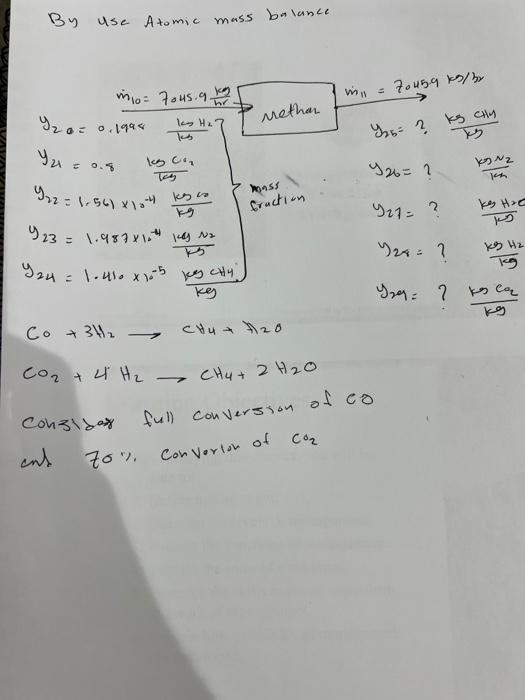 By use Atomic mass balance
ṁ10 = 7045.9 kg/hr
Methan
ṁ11 = 7045.9 kg/hr
y20 = 0.1998 kg H2/kg
y21 = 0.8 kg CO2/kg
y22 = 1.561 x 10^-4 kg CO/kg
y23 = 1.987 x 10^-4 kg N2/kg
y24 = 1.410 x 10^-5 kg CH4/kg
mass
fraction
y25 = ? kg CH4/kg
y26 = ? kg N2/kg
y27 = ? kg H2O/kg
y28 = ? kg H2/kg
y29 = ? kg CO2/kg
CO + 3H2 → CH4 + H2O
CO2 + 4 H2 → CH4 + 2 H2O
full conversion of CO
70 %. Convorion of CO2